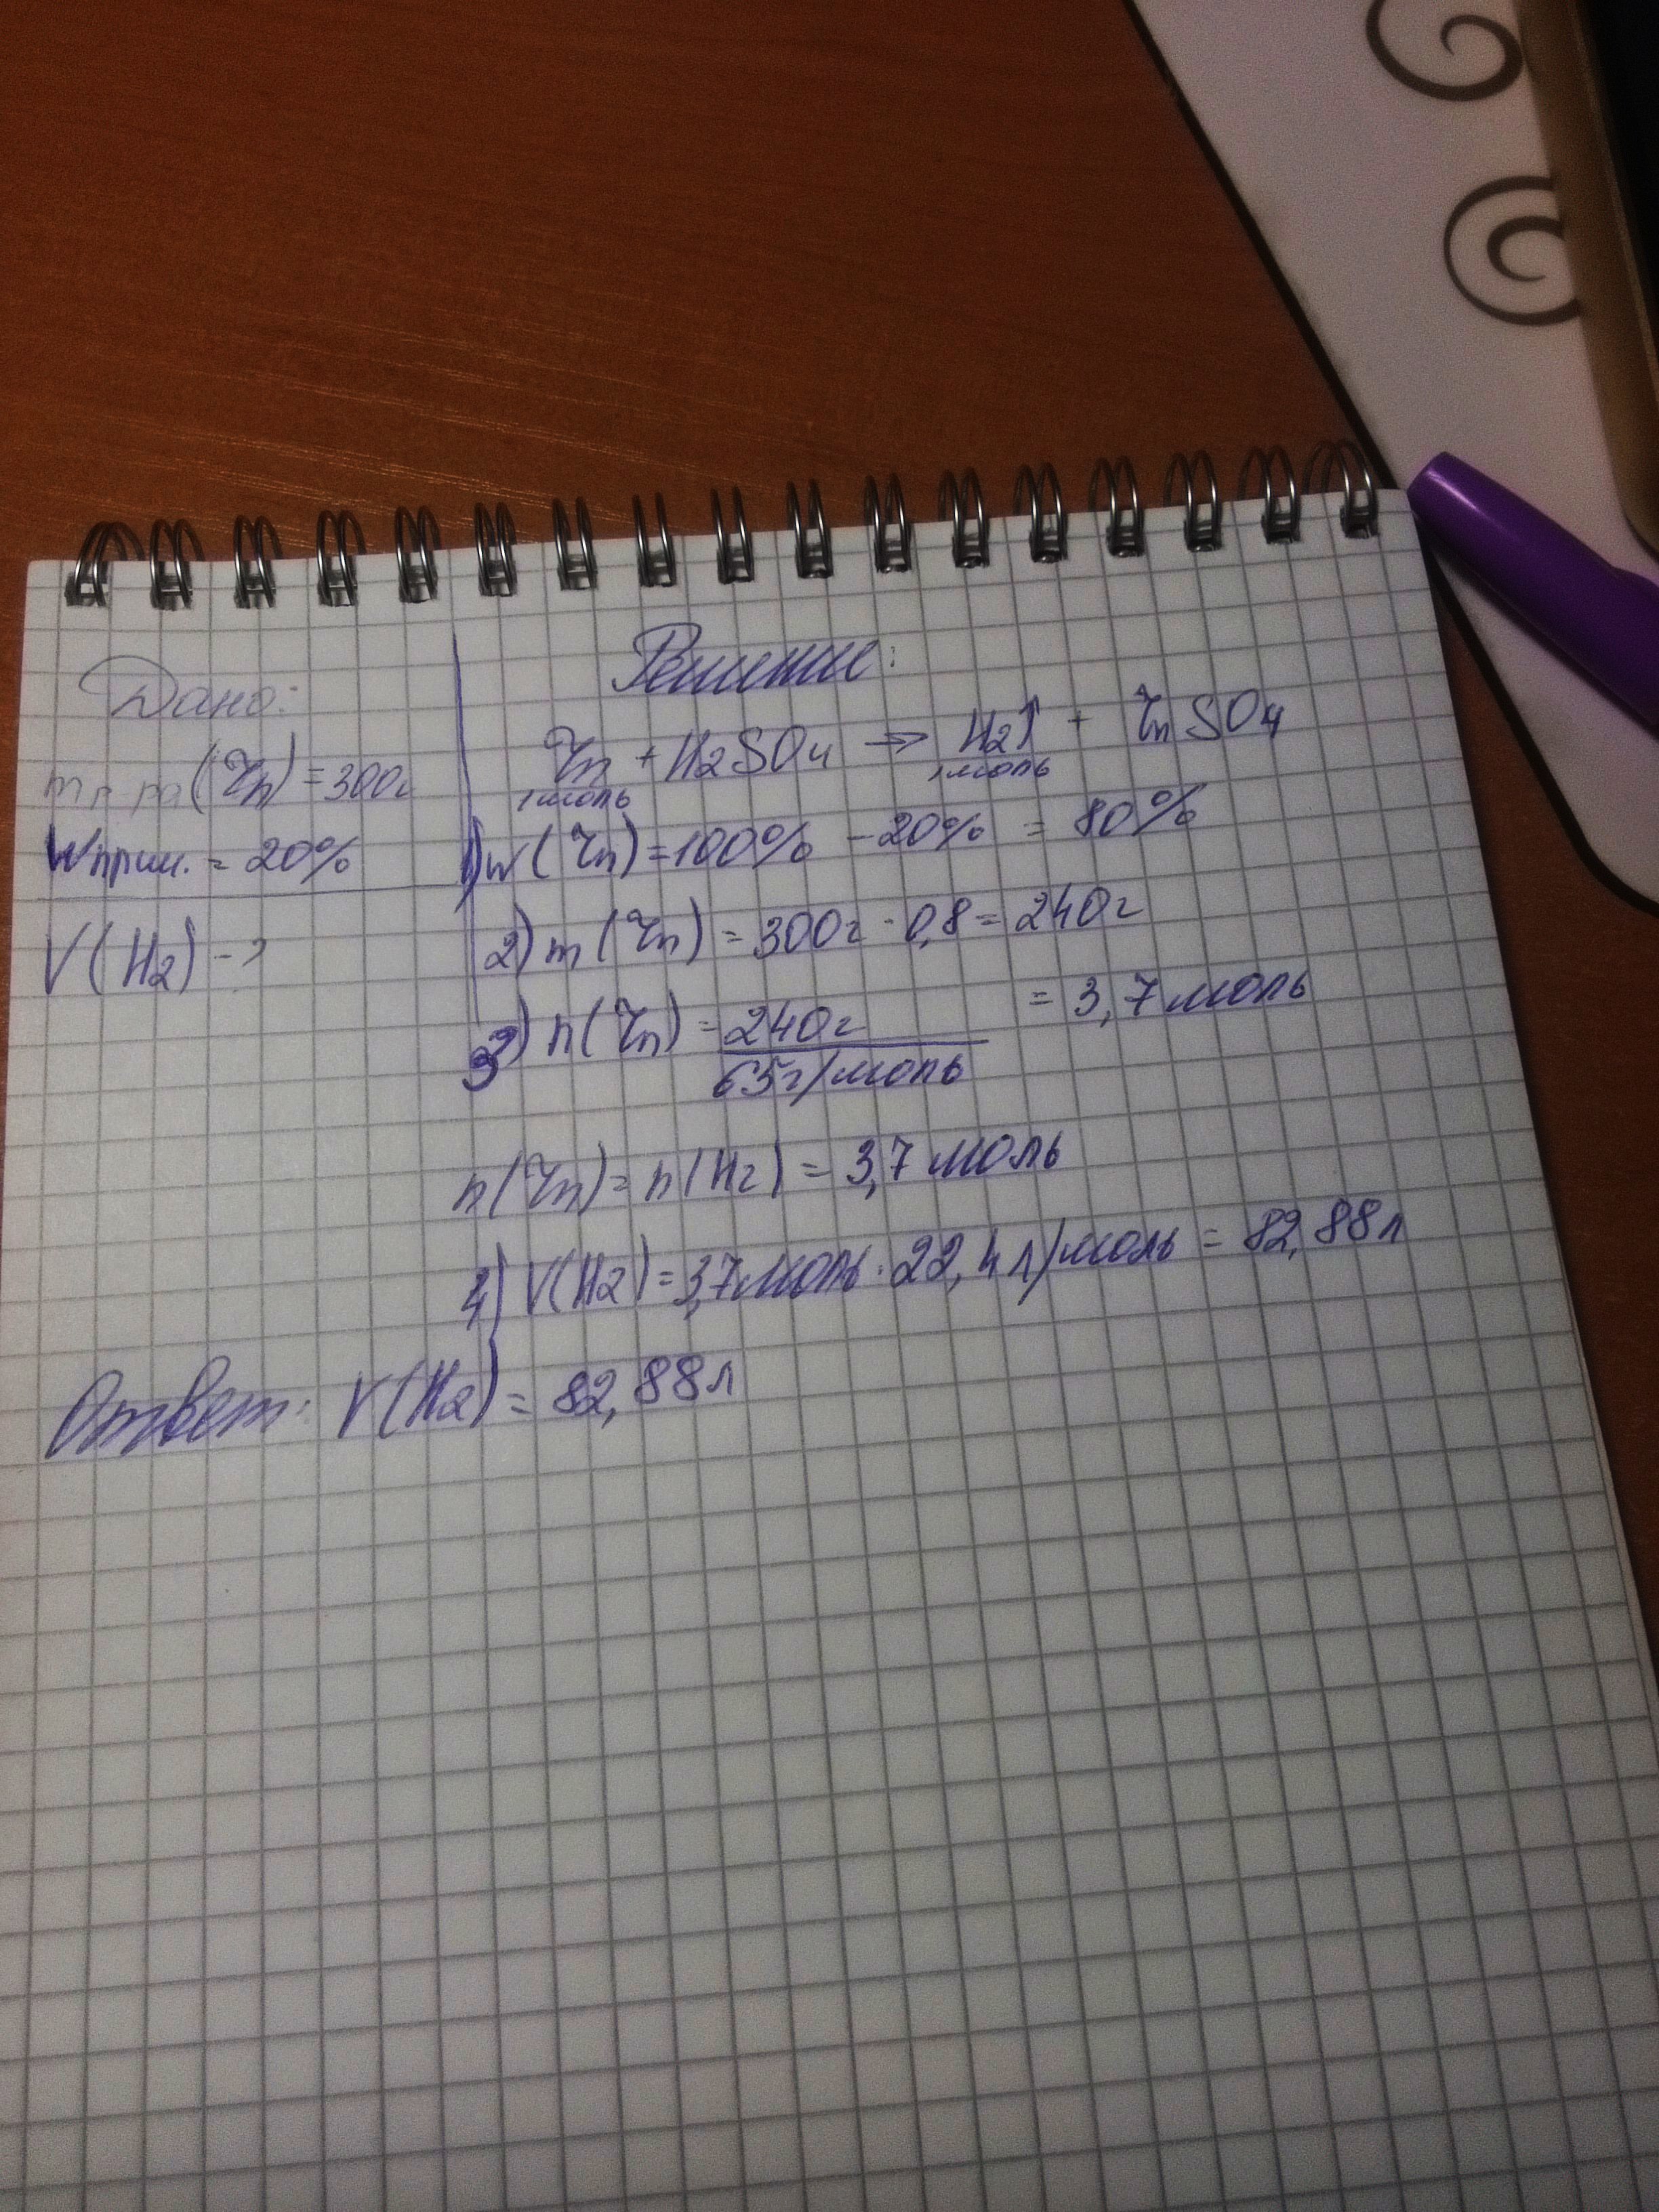 Дано:
m р-ра (Zn) = 300г
Wприм. = 20%
V(H2) - ?
Решение:
Zn + H2SO4 → H2↑ + ZnSO4
1моль 1моль
1) w(Zn) = 100% - 20% = 80%
2) m(Zn) = 300г · 0,8 = 240г
3) n(Zn) = 240г / 65г/моль = 3,7 моль
n(Zn) = n(H2) = 3,7 моль
4) V(H2) = 3,7моль · 22,4 л/моль = 82,88л
Ответ: V(H2) = 82,88л